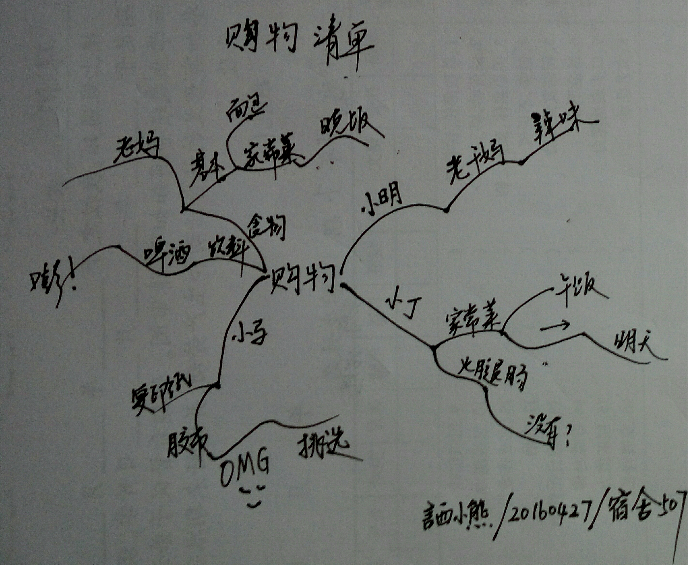 购物清单
老妈
基本
家常菜
晚饭
食物
饮料
啤酒
嘭!
购物
小明
老干妈
辣味
小丁
家常菜
午饭
→
明天
火腿肠
没有?
小马
复印纸
胶布
OMG
挑选
小熊/20160427/宿舍507